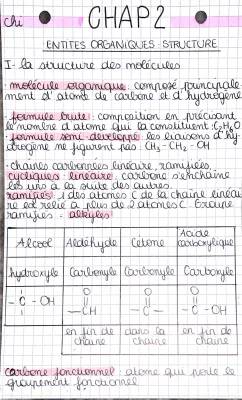 chi CHAP 2
ENTITES ORGANIQUES : STRUCTURE
I - la structure des molécules
• molécule organique : composé principale
ment d'atome de carbone et d'hydrogène
• formule brute : composition en précisant
le nombre d'atome qui la constituent : C₂H₆O
• formule semi-développé : les liaisons d'hy
drogène ne figurent pas : CH₃-CH₂-OH
• chaînes carbonnées linéaire, ramifiées,
cycliques : linéaire : carbone s'enchaîne
les uns à la suite des autres.
ramifiés : 1 des atomes C de la chaîne linéai
re est relié à plus de 2 atomes C. Groupe
ramifiés = alkyles
Alcool Aldéhyde Cétone Acide carboxylique
hydroxyle Carbonyle Carbonyle Carboxyle
- C - OH
O - CH
O - C -
O - C - OH
en fin de chaîne dans la chaîne en fin de chaîne
carbone fonctionnel : atome qui porte le
groupement fonctionnel